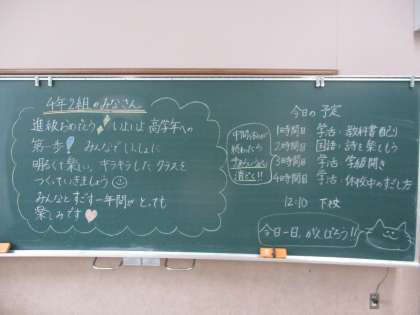 4年2組のみなさん
進級おめでとう!いよいよ高学年への
第一歩! みんなでいっしょに
明るく楽しい、キラキラしたクラスを
つくっていきましょう
みんなとすごす一年間がとっても
楽しみです
今日の予定
1時間目 学活:教科書配り
2時間目 国語:詩を楽しもう
3時間目 学活:学級開き
4時間目 学活:休校中のすごし方
12:10 下校
中間休みが
終わったら
消す!!
今日一日、がんばろう!!